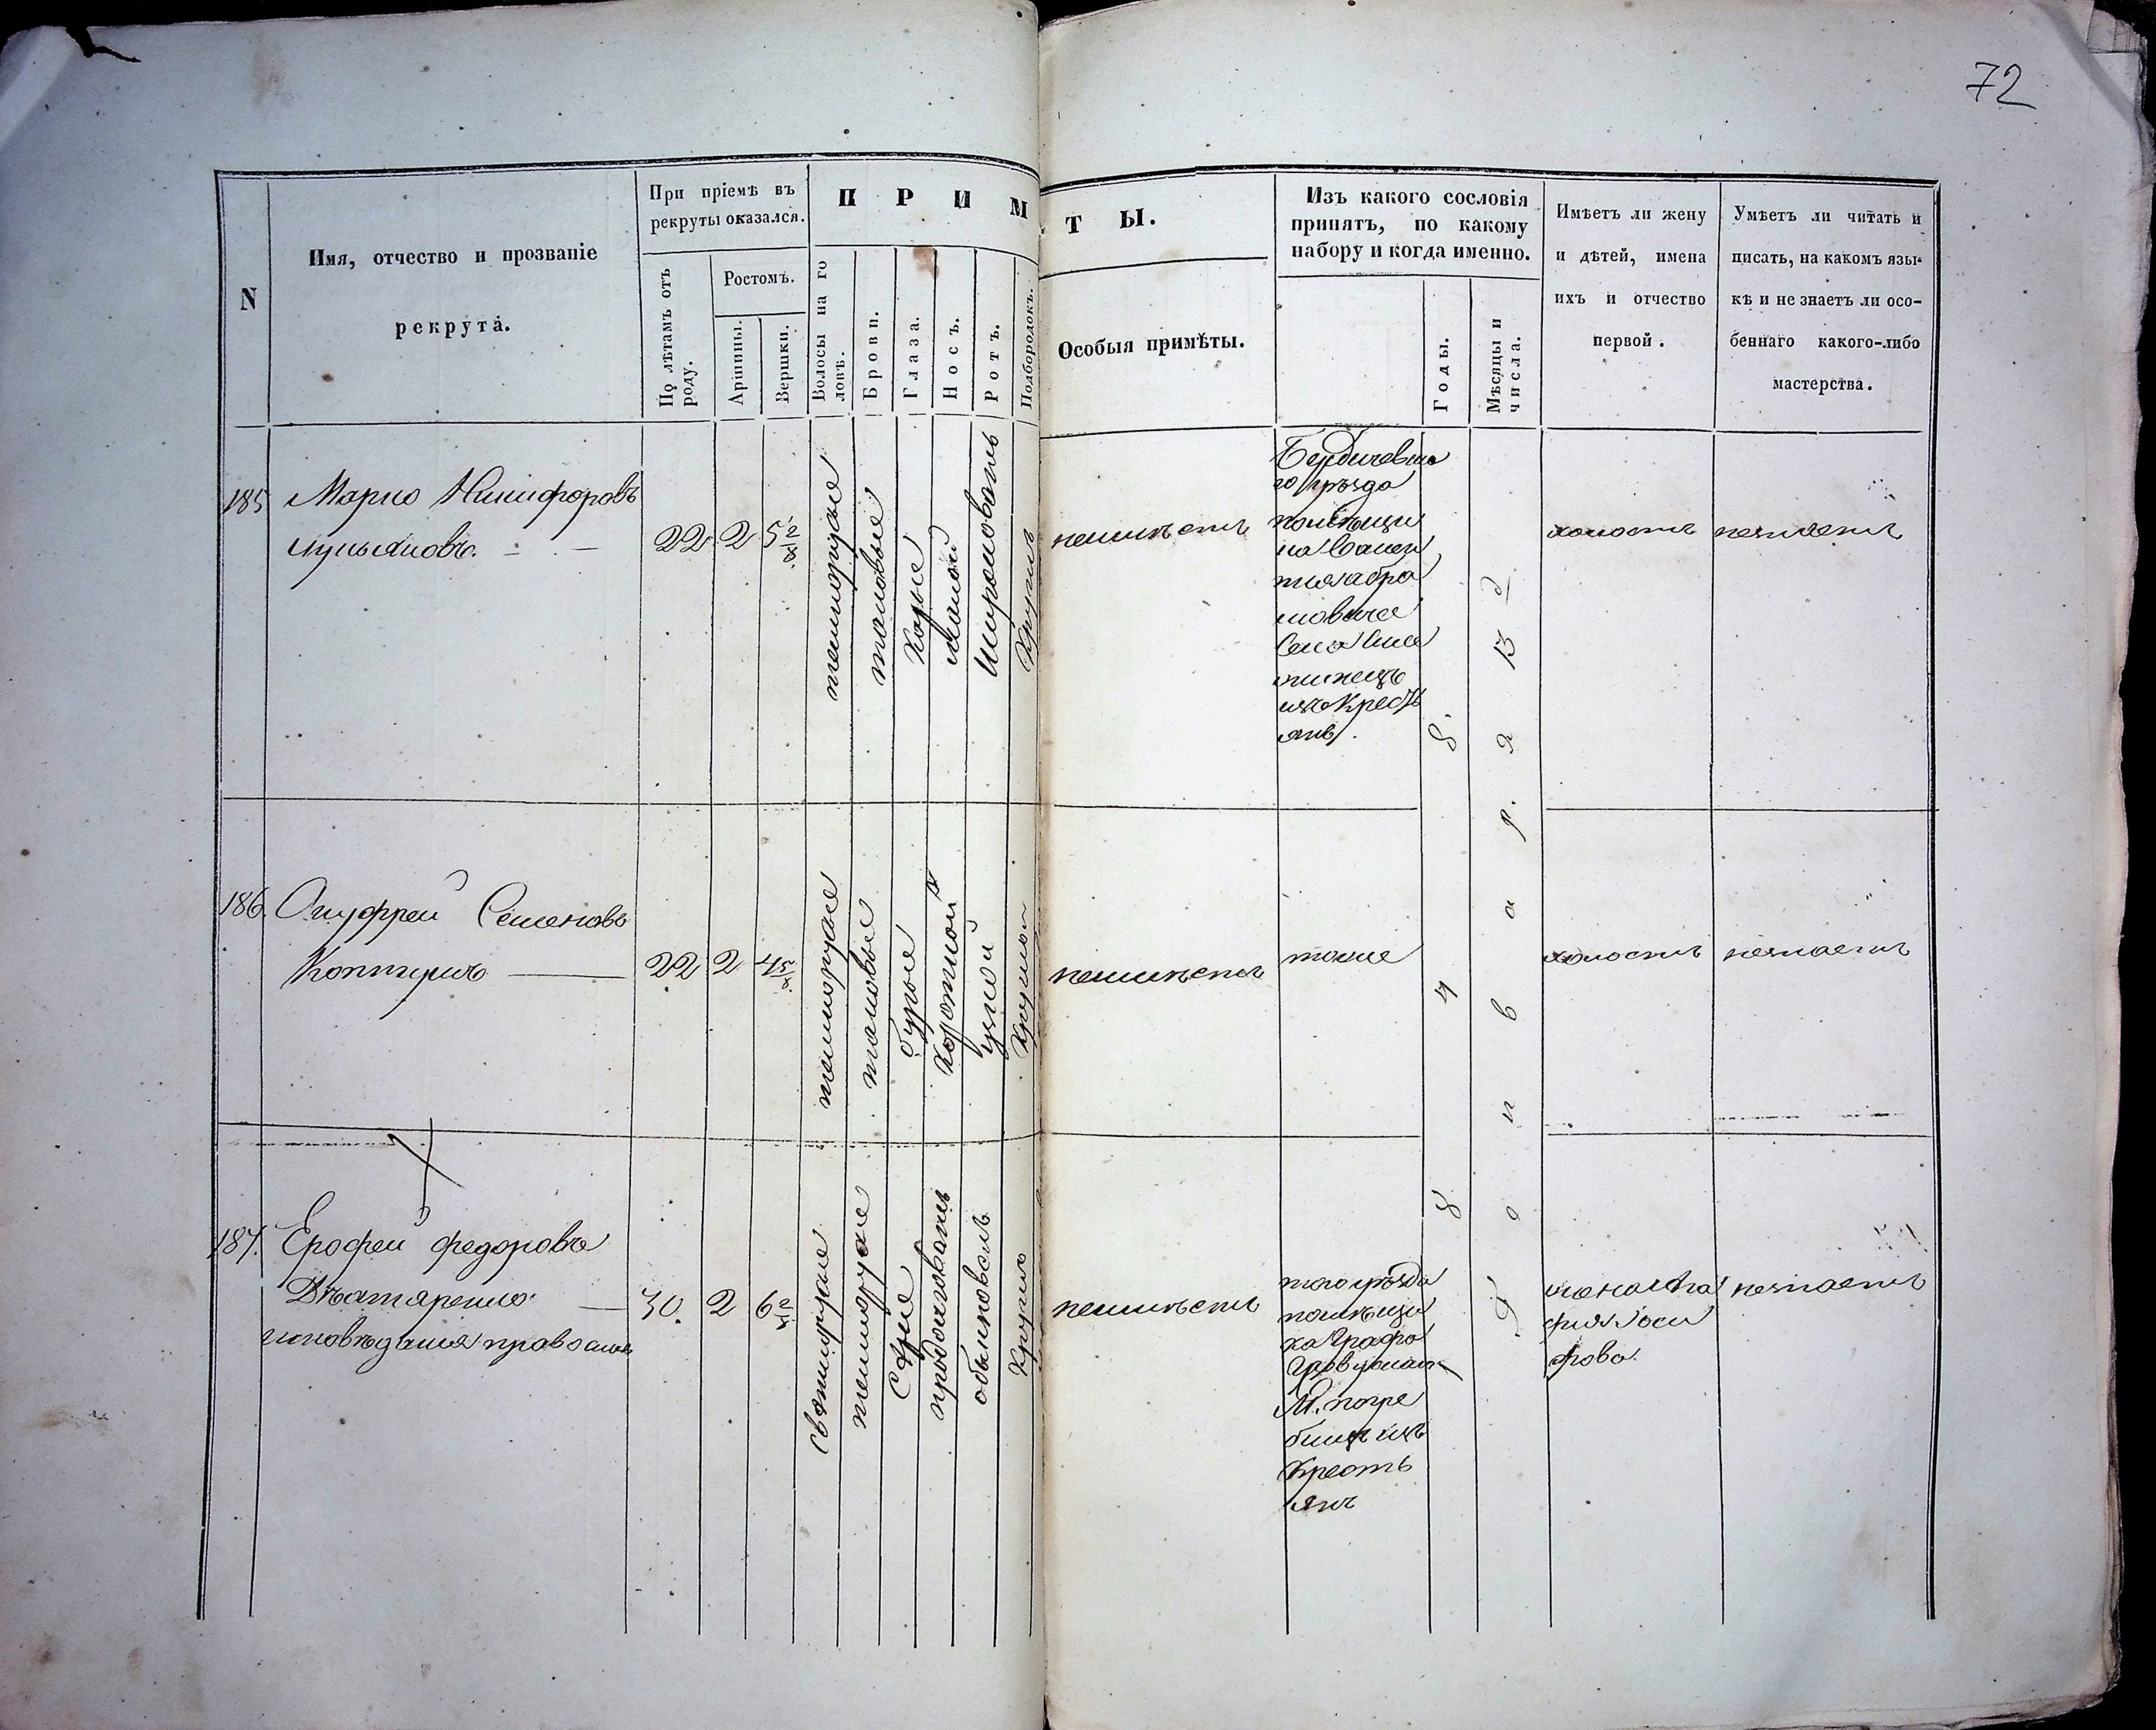 72
N
Имя, отчество и прозваніе
рекрута.
При пріемѣ въ
рекруты оказался.
По лѣтамъ отъ
роду.
Ростомъ.
Аршины.
Вершки.
П Р И М
Т Ы.
Волосы на го
ловѣ.
Брови.
Глаза.
Носъ.
Ротъ.
Подбородокъ.
Особыя примѣты.
Изъ какого сословія
принятъ, по какому
набору и когда именно.
Годы.
Мѣсяцы и
числа.
Имѣетъ ли жену
и дѣтей, имена
ихъ и отчество
первой.
Умѣетъ ли читать и
писать, на какомъ язы-
кѣ и не знаетъ ли осо-
беннаго какого-либо
мастерства.
185 Марко Никифоровъ
22 2 5
темнорусые
таковые
карые
малой
широковатъ
кругелъ
неимѣетъ
Бердичевска
го уѣзда
помѣщи
изъ Кресть
янъ.
холостъ
незнаетъ
186. Онуфрей Семеновъ
22 2 4
темнорусые
таковые
бурые
короткой
узкой
неимѣетъ
тоже
холостъ
незнаетъ
187. Ерофей Федоровъ
исповѣданія православ
30. 2 6
светлорусые
темнорусые
серые
продолговатъ
обыкновенъ
кругелъ
неимѣетъ
того уѣзда
помѣщи
ка Графа
М. погре
бищъ изъ
Кресть
янъ
жена Ага
фия Иоси
фова.
незнаетъ
8 4 8
Января 13 д